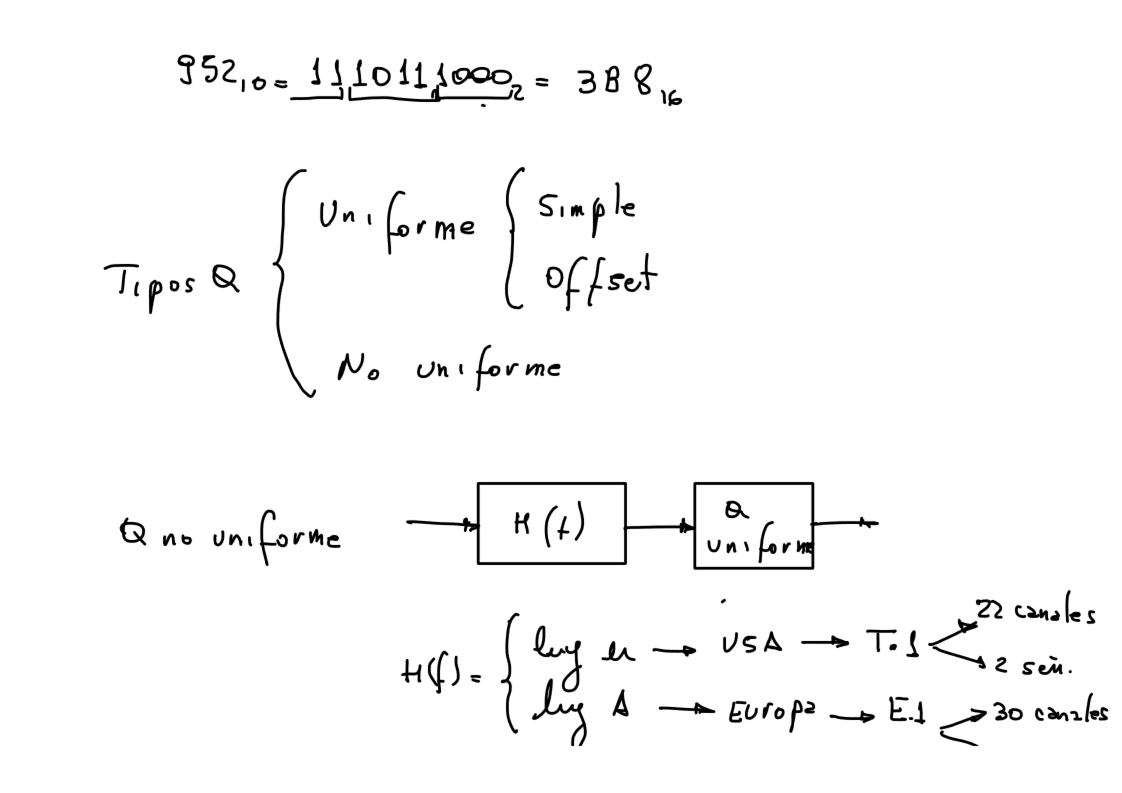 952₁₀ = 1110111000₂ = 3B8₁₆
Tipos Q
Uniforme
Simple
Offset
No uniforme
Q no uniforme
H(f)
Q
uniforme
H(f) =
ley u → USA → T.1
22 canales
2 señ.
ley A → Europa → E.1
30 canales